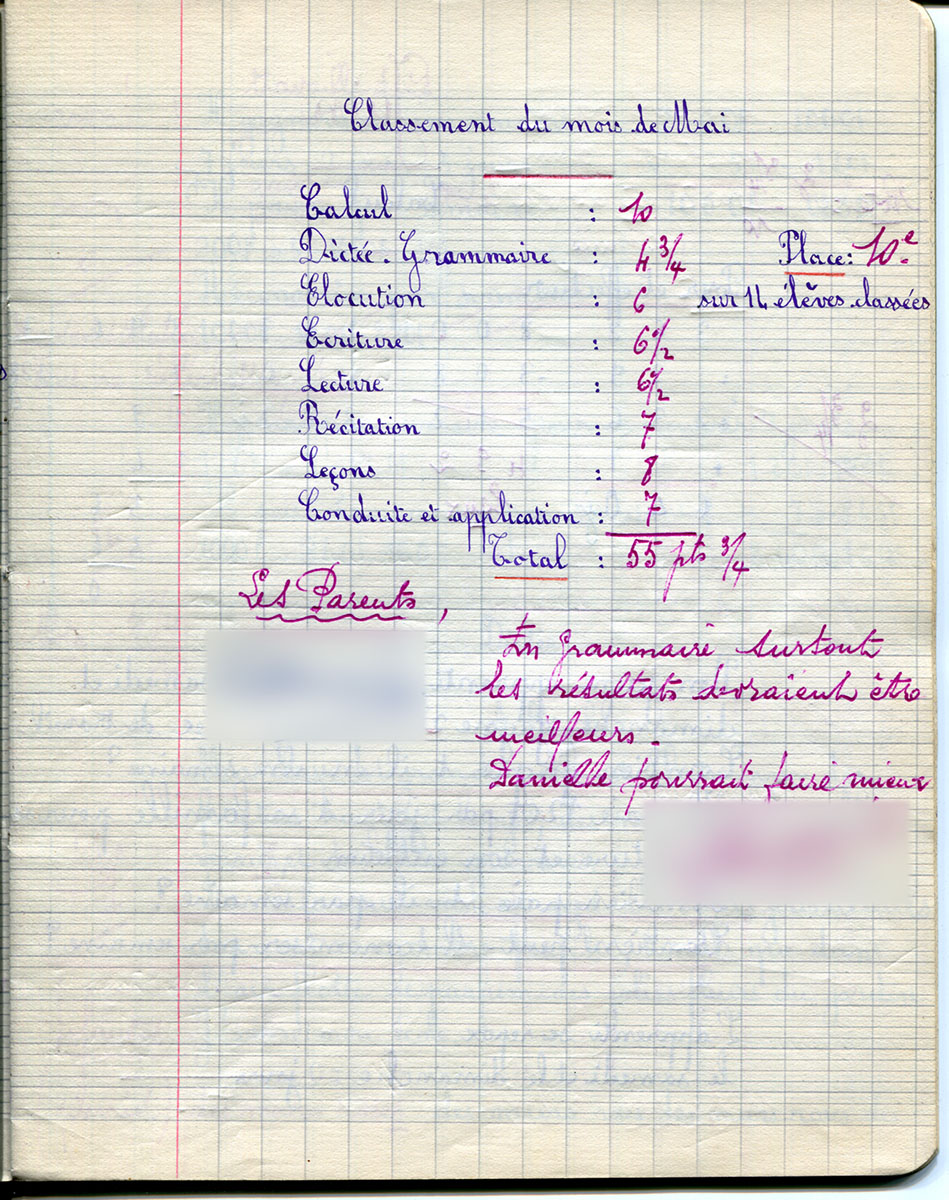 Classement du mois de Mai
Calcul : 10
Dictée. Grammaire : 4 3/4
Place: 10e
Elocution : 6 sur 14 élèves classées
Ecriture : 6 1/2
Lecture : 6 1/2
Récitation : 7
Leçons : 8
Conduite et application : 7
Total : 55 pts 3/4
Les Parents,
En grammaire surtout
les résultats devraient être
meilleurs.
Danielle pourrait faire mieux